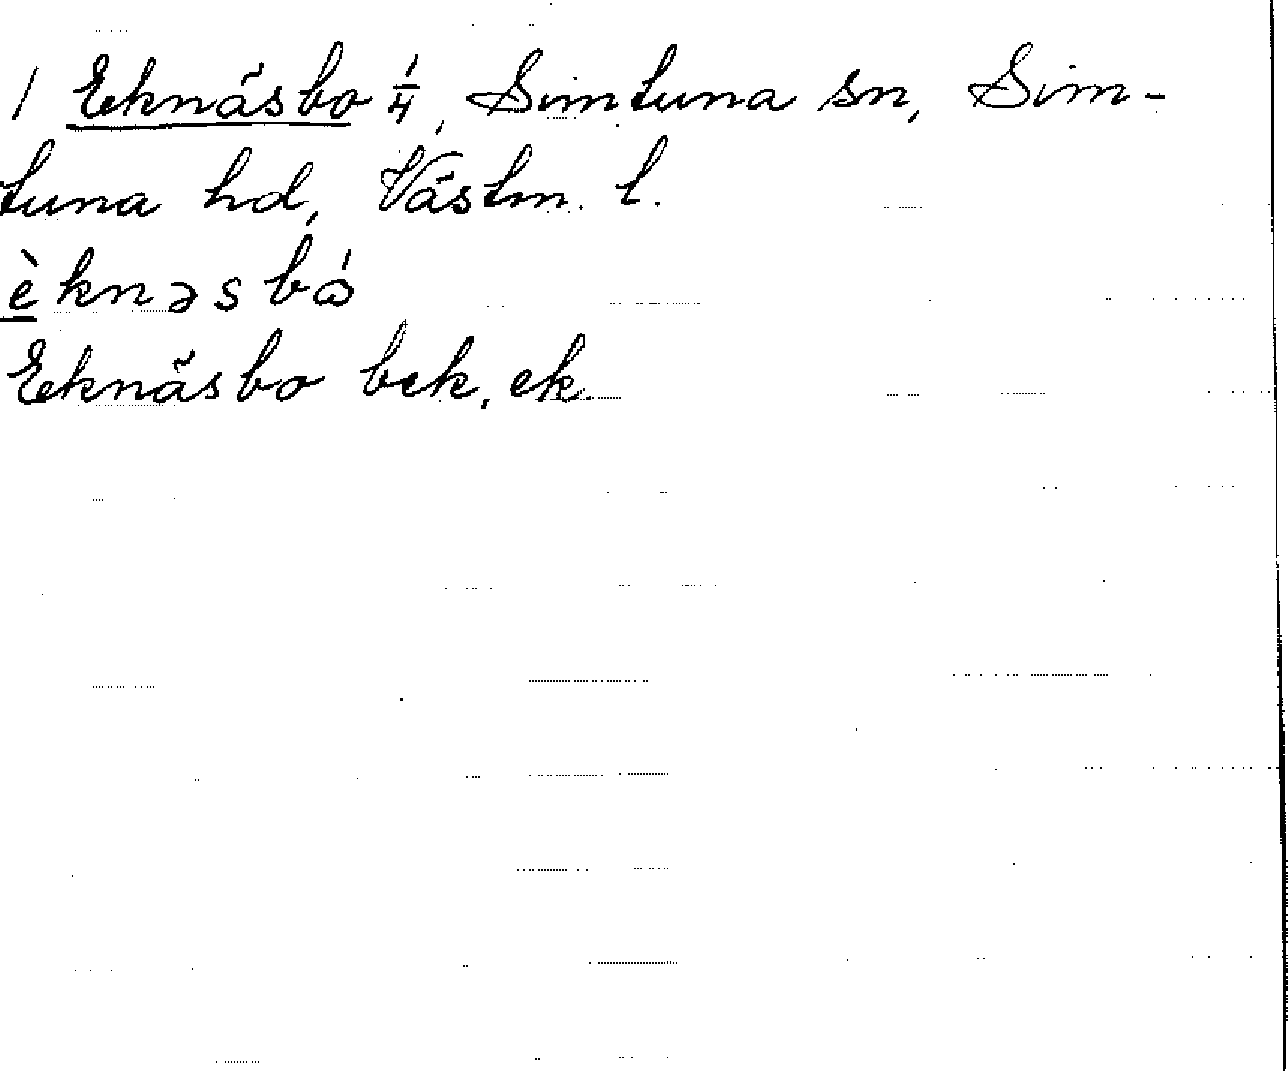 1 Eknäsbo 1/4, Simtuna sn, Sim-
tuna hd, Västm. l.
èknəsbó
Eknäsbo bek, ek.